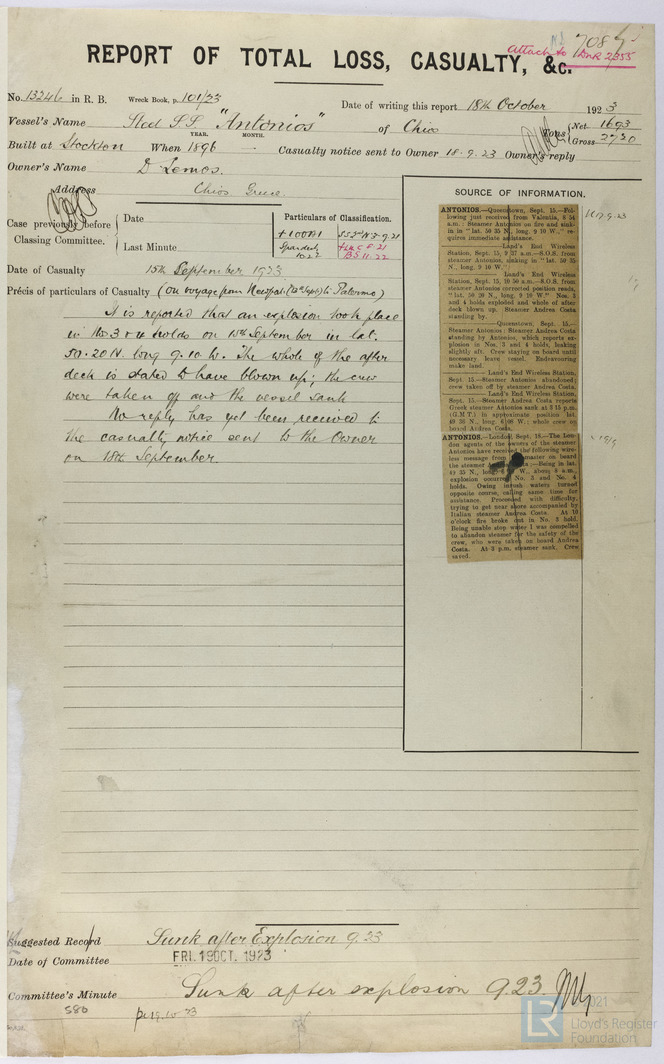 7084
Attach to DnR 2355
REPORT OF TOTAL LOSS, CASUALTY, &c.
No. 13246 in R. B. Wreck Book, p. 101/23
Date of writing this report 18th October 1923
Vessel's Name Steel S.S. "Antonios" of Chios Tons { Net 1693
YEAR. MONTH. Gross 2720
Built at Stockton When 1896 Casualty notice sent to Owner 18.9.23 Owner's reply
Owner's Name D Lemos.
Address Chios, Greece.
Case previously before Classing Committee. { Date
Last Minute
Particulars of Classification.
+100A1
Spardeck
10.22
+LMC 8.21
BS 11.22
Date of Casualty 15th September 1923
Précis of particulars of Casualty (On voyage from Newport to Palermo)
It is reported that an explosion took place
in Nos 3 & 4 holds on 15th September in lat.
50.20N. long 9.10W. The whole of the after
deck is stated to have blown up; the crew
were taken off and the vessel sank
No reply has yet been received to
the casualty notice sent to the Owner
on 18th September.
SOURCE OF INFORMATION.
ANTONIOS.—Queenstown, Sept. 15.—Fol-
lowing just received from Valentia, 8 54
a.m.: Steamer Antonios on fire and sink-
in in "lat. 50 35 N., long. 9 10 W.," re-
quires immediate assistance.
——Land's End Wireless
Station, Sept. 15, 9 37 a.m.—S.O.S. from
steamer Antonios, sinking in "lat. 50 35
N., long. 9 10 W."
——Land's End Wireless
Station, Sept. 15, 10 50 a.m.—S.O.S. from
steamer Antonios corrected position reads,
"lat. 50 20 N., long. 9 10 W." Nos. 3
and 4 holds exploded and whole of after
deck blown up. Steamer Andrea Costa
standing by.
——Queenstown, Sept. 15.—
Steamer Antonios: Steamer Andrea Costa
standing by Antonios, which reports ex-
plosion in Nos. 3 and 4 holds, leaking
slightly aft. Crew staying on board until
necessary leave vessel. Endeavouring
make land.
——Land's End Wireless Station,
Sept. 15.—Steamer Antonios abandoned;
crew taken off by steamer Andrea Costa.
——Land's End Wireless Station,
Sept. 15.—Steamer Andrea Costa reports
Greek steamer Antonios sank at 3 15 p.m.
(G.M.T.) in approximate position lat.
49 35 N., long. W.; whole crew on
board Andrea Costa.
ANTONIOS.—London, Sept. 18.—The Lon-
don agents of the owners of the steamer
Antonios have received the following wire-
less message from master on board
the steamer Andrea Costa:—Being in lat.
49 35 N., long. W., about 8 a.m.,
explosion occurred No. 3 and No. 4
holds. Owing inrush waters turned
opposite course, calling same time for
assistance. Proceeded with difficulty,
trying to get near shore accompanied by
Italian steamer Andrea Costa. At 10
o'clock fire broke out in No. 3 hold.
Being unable stop water I was compelled
to abandon steamer for the safety of the
crew, who were taken on board Andrea
Costa. At 3 p.m. steamer sank. Crew
saved.
Suggested Record Sunk after Explosion 9.23
Date of Committee FRI. 19 OCT. 1923
Committee's Minute Sunk after explosion 9.23
580
19.10.23
2021
LR Lloyd's Register
Foundation